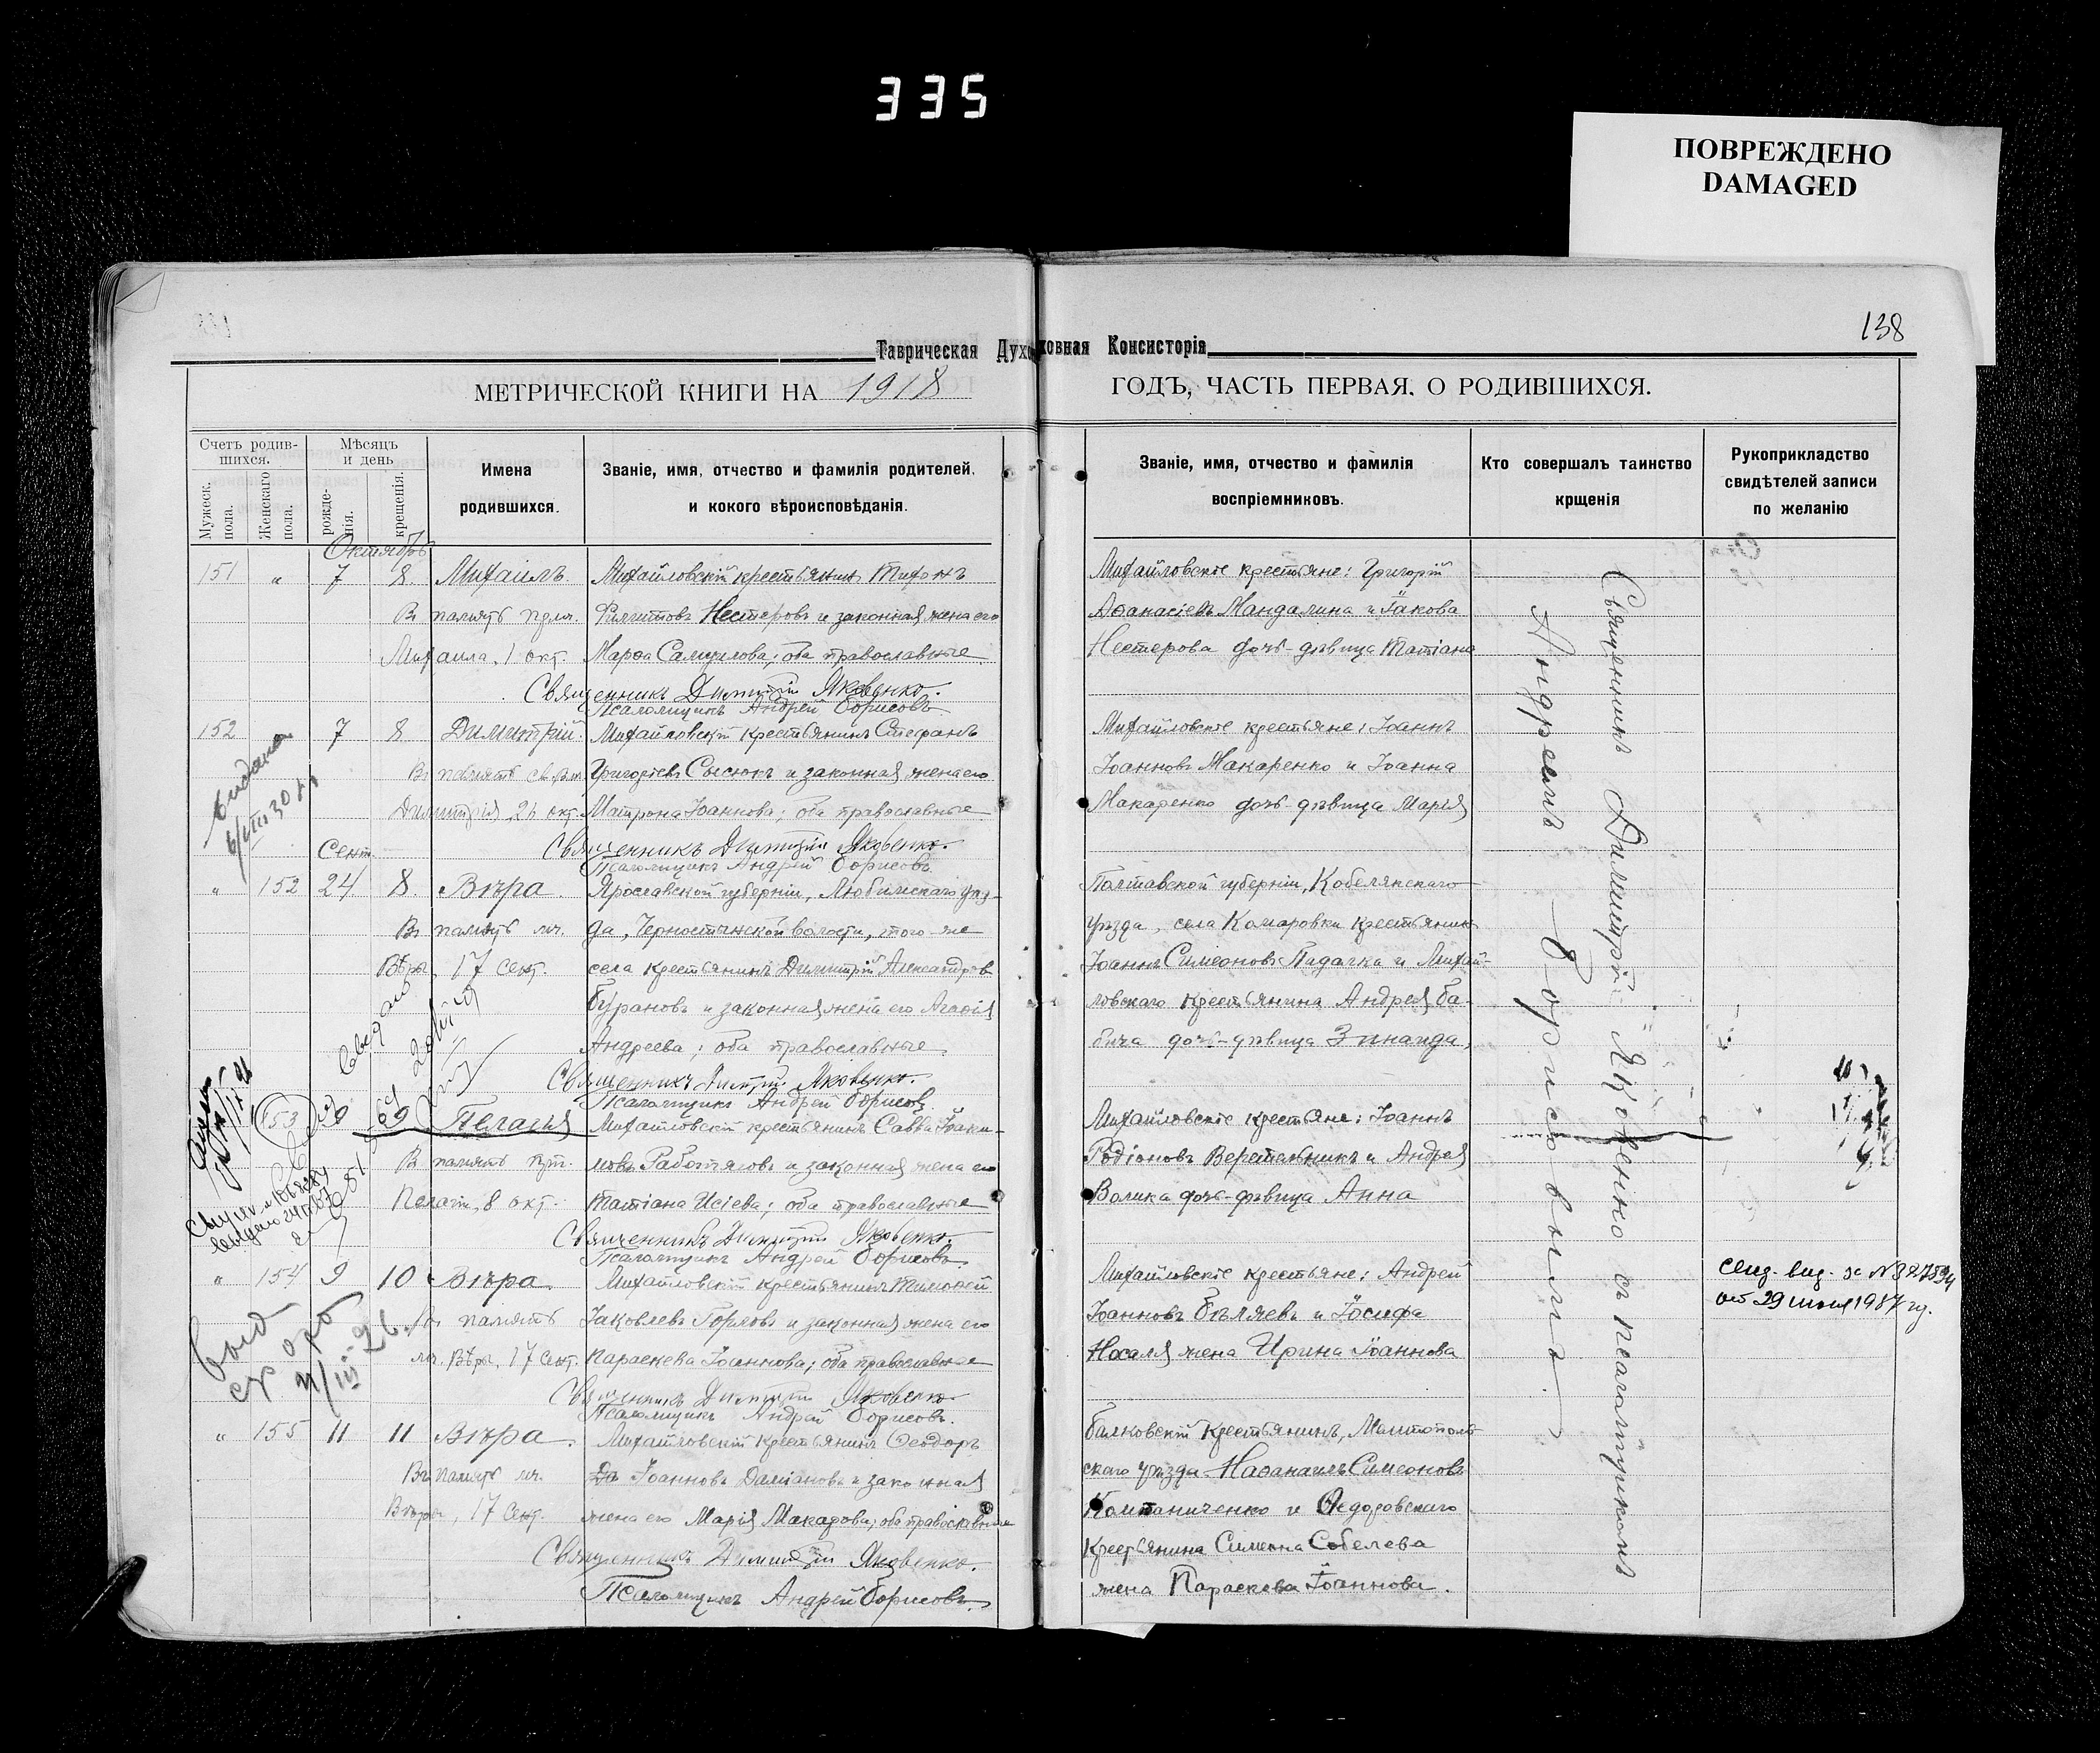 335
ПОВРЕЖДЕНО
DAMAGED
138
Таврическая Духовная Консисторія
МЕТРИЧЕСКОЙ КНИГИ НА 1918 ГОДЪ, ЧАСТЬ ПЕРВАЯ. О РОДИВШИХСЯ.
Счетъ родив-
шихся.
Мужеск.
пола.
Женскаго
пола.
Мѣсяцъ
и день
рожде-
нія.
крещенія.
Имена
родившихся.
Званіе, имя, отчество и фамилія родителей,
и кокого вѣроисповѣданія.
Званіе, имя, отчество и фамилія
воспріемниковъ.
Кто совершалъ таинство
крщенія
Рукоприкладство
свидѣтелей записи
по желанію
Октябрь
151 " 7 8. Михаилъ Михайловскій крестьянинъ Тихонъ
Въ память прпм. Нестеровъ и законная жена его
Михаила, 1 окт. Марѳа Самуилова; оба православные
Священникъ Димитрій Яковенко.
Псаломщикъ Андрей Борисовъ
Михайловскіе крестьяне: Григорій
Аѳанасіевъ Мандалина и Іакова
Нестерова дочь-дѣвица Татіана
152 7 8 Димитрій. Михайловскій крестьянинъ Стефанъ
Въ память св. вм. Григоріевъ Сысюкъ и законная жена его
Димитрія, 26 окт. Матрона Іоаннова; оба православные
Священникъ Димитрій Яковенко.
Псаломщикъ Андрей Борисовъ
Михайловскіе крестьяне: Іоаннъ
Іоанновъ Макаренко и Іоанна
Макаренко дочь-дѣвица Марія
Выдана
Сент.
" 152 24 8. Вѣра Ярославской губерніи, Любимскаго уѣз-
Въ память мч. да, волости, того-же
Вѣры, 17 сент. села крестьянинъ Димитрій Александров
Бурановъ и законная жена его Агаѳія
Андреева; оба православные
Священникъ Димитрій Яковенко.
Псаломщикъ Андрей Борисов
Полтавской губерніи, Кобелякскаго
уѣзда, села Комаровки крестьянинъ
Іоаннъ Симеоновъ Падалка и Михай-
ловскаго крестьянина Андрея Ба-
бича дочь-дѣвица Зинаида,
153 9 Пелагія Михайловскій крестьянинъ Савва Іоаки-
Въ память прп. мовъ Работяговъ и законная жена его
Пелагіи, 8 окт. Татіана Исіева; оба православные
Священникъ Димитрій Яковенко.
Псаломщикъ Андрей Борисовъ
Михайловскіе крестьяне: Іоаннъ
Родіоновъ Веретельникъ и Андрея
Волика дочь-дѣвица Анна
" 154 9 10 Вѣра Михайловскій крестьянинъ Тимоѳей
Въ память Іаковлевъ Горловъ и законная жена его
мч. Вѣры, 17 сент. Параскева Іоаннова; оба православные
Священникъ Димитрій Яковенко
Псаломщикъ Андрей Борисовъ.
Михайловскіе крестьяне: Андрей
Іоанновъ Бѣляевъ и Іосифа
Носаля жена Ирина Іоаннова
" 155 11 11 Вѣра. Михайловскій крестьянинъ Ѳеодоръ
Въ память мч. Іоанновъ Даміановъ и законная
Вѣры, 17 сент. жена его Марія Макарова; оба православные
Священникъ Димитрій Яковенко.
Псаломщикъ Андрей Борисовъ.
Балковскій крестьянинъ, Мелитополь-
скаго уѣзда Наѳанаилъ Симеоновъ
Компаниченко и Ѳедоровскаго
крестьянина Симеона Соболева
жена Параскева Іоаннова.
Священникъ Димитрій Яковенко съ псаломщикомъ
Андреемъ Борисовымъ.
от 29 июня 1987 г.